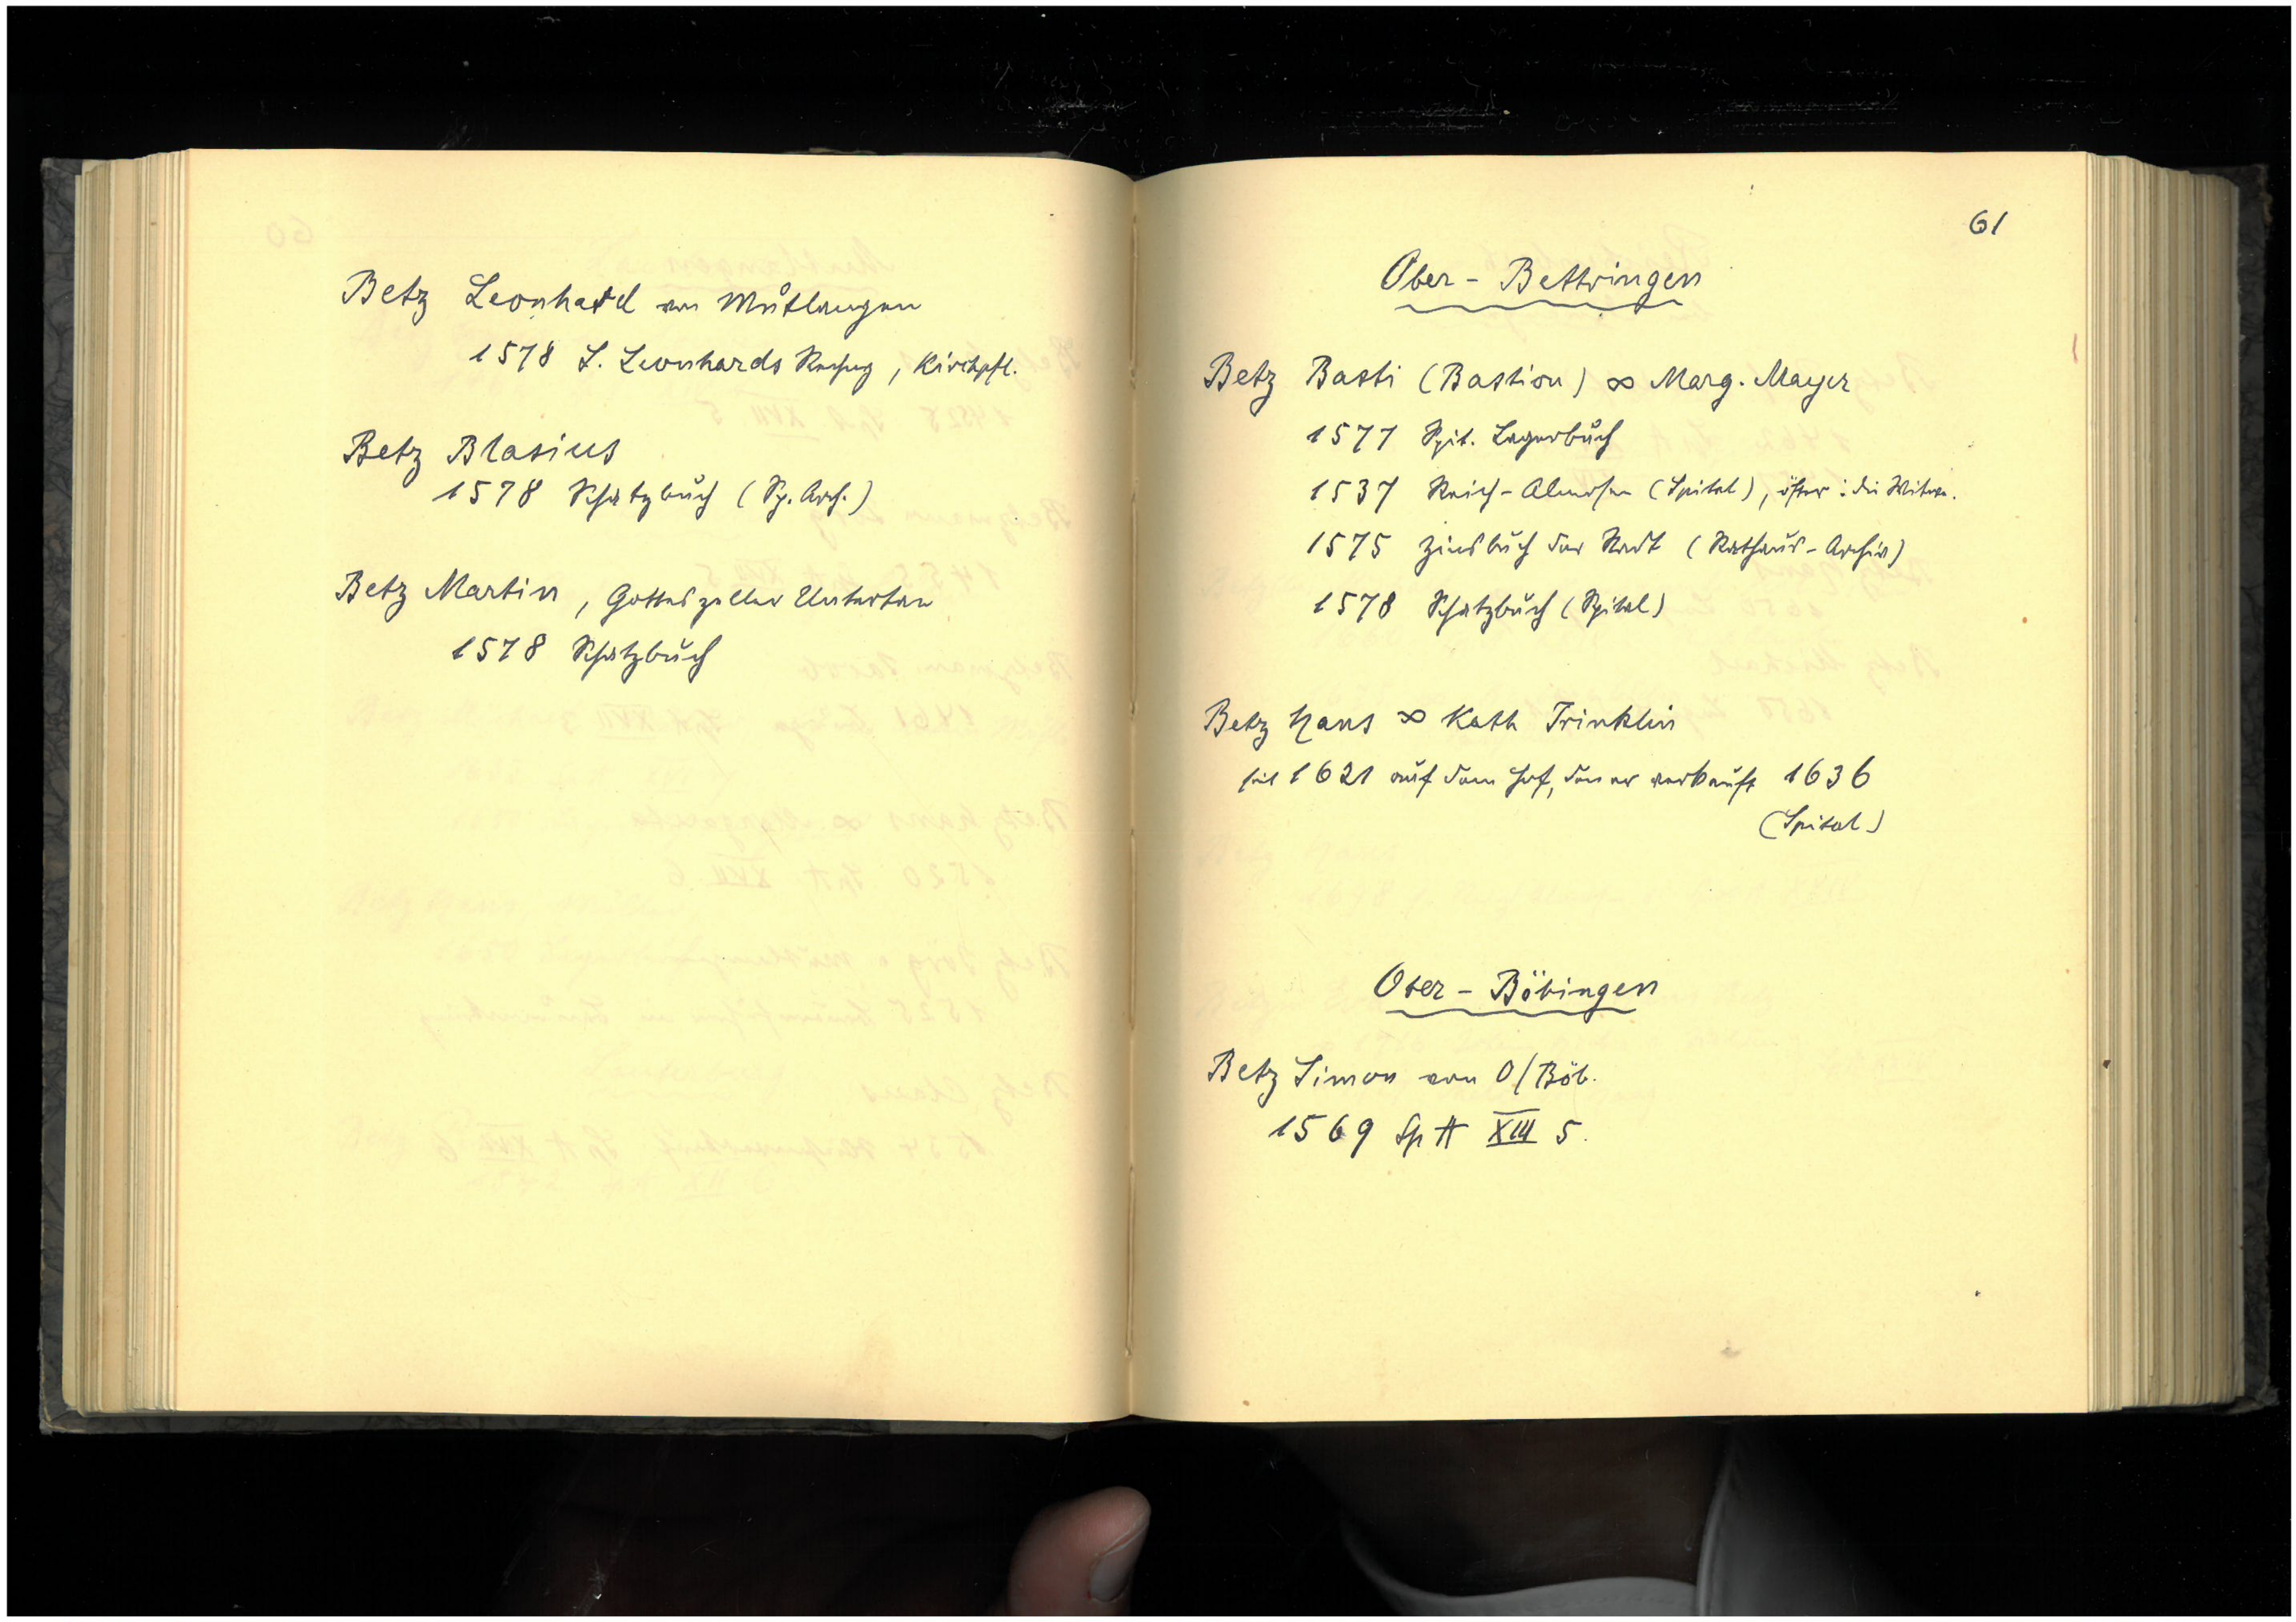 Betz Leonhard von Mutlangen
1578 S. Leonhards Rechng, Kirchpfl.
Betz Blasius
1578 Schatzbuch (Sp. Arch.)
Betz Martin, Gotteszeller Untertan
1578 Schatzbuch
61
Ober-Bettringen
Betz Basti (Bastion) ∞ Marg. Mayer
1577 Spit. Lagerbuch
1537 Reich-Almosen (Spital), öfter: die Witwe.
1575 Zinsbuch der Stadt (Rathaus-Archiv)
1578 Schatzbuch (Spital)
Betz Hans ∞ Kath Trinklin
seit 1621 auf dem Hof, den er verkauft 1636
(Spital)
Ober-Böbingen
Betz Simon von O/Böb.
1569 Sp A XIII 5.